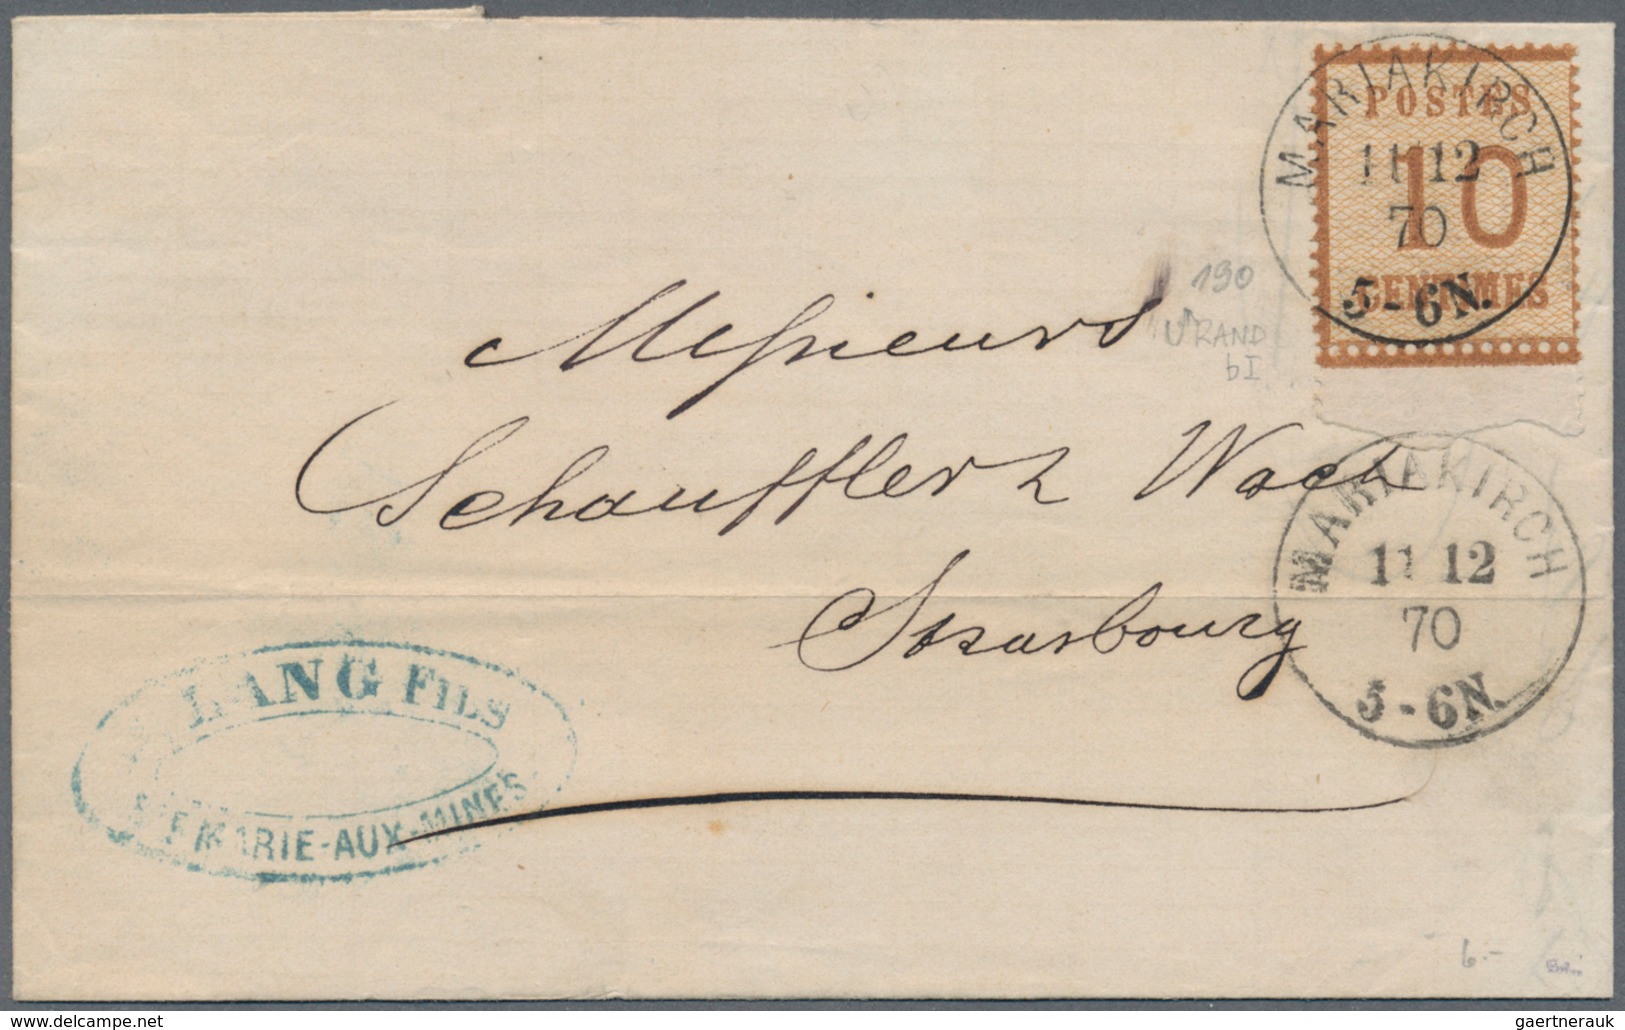 MARIAKIRCH
POSTES
11 12
10
70
CENTIMES
5-6N.
190
U'RAND
bI
Messieurs
Schauffler & Wach
Strasbourg
MARIAKIRCH
11 12
70
5-6N.
LANG FILS
STE MARIE-AUX-MINES
6.-
delcampe.net
gaertnerauk